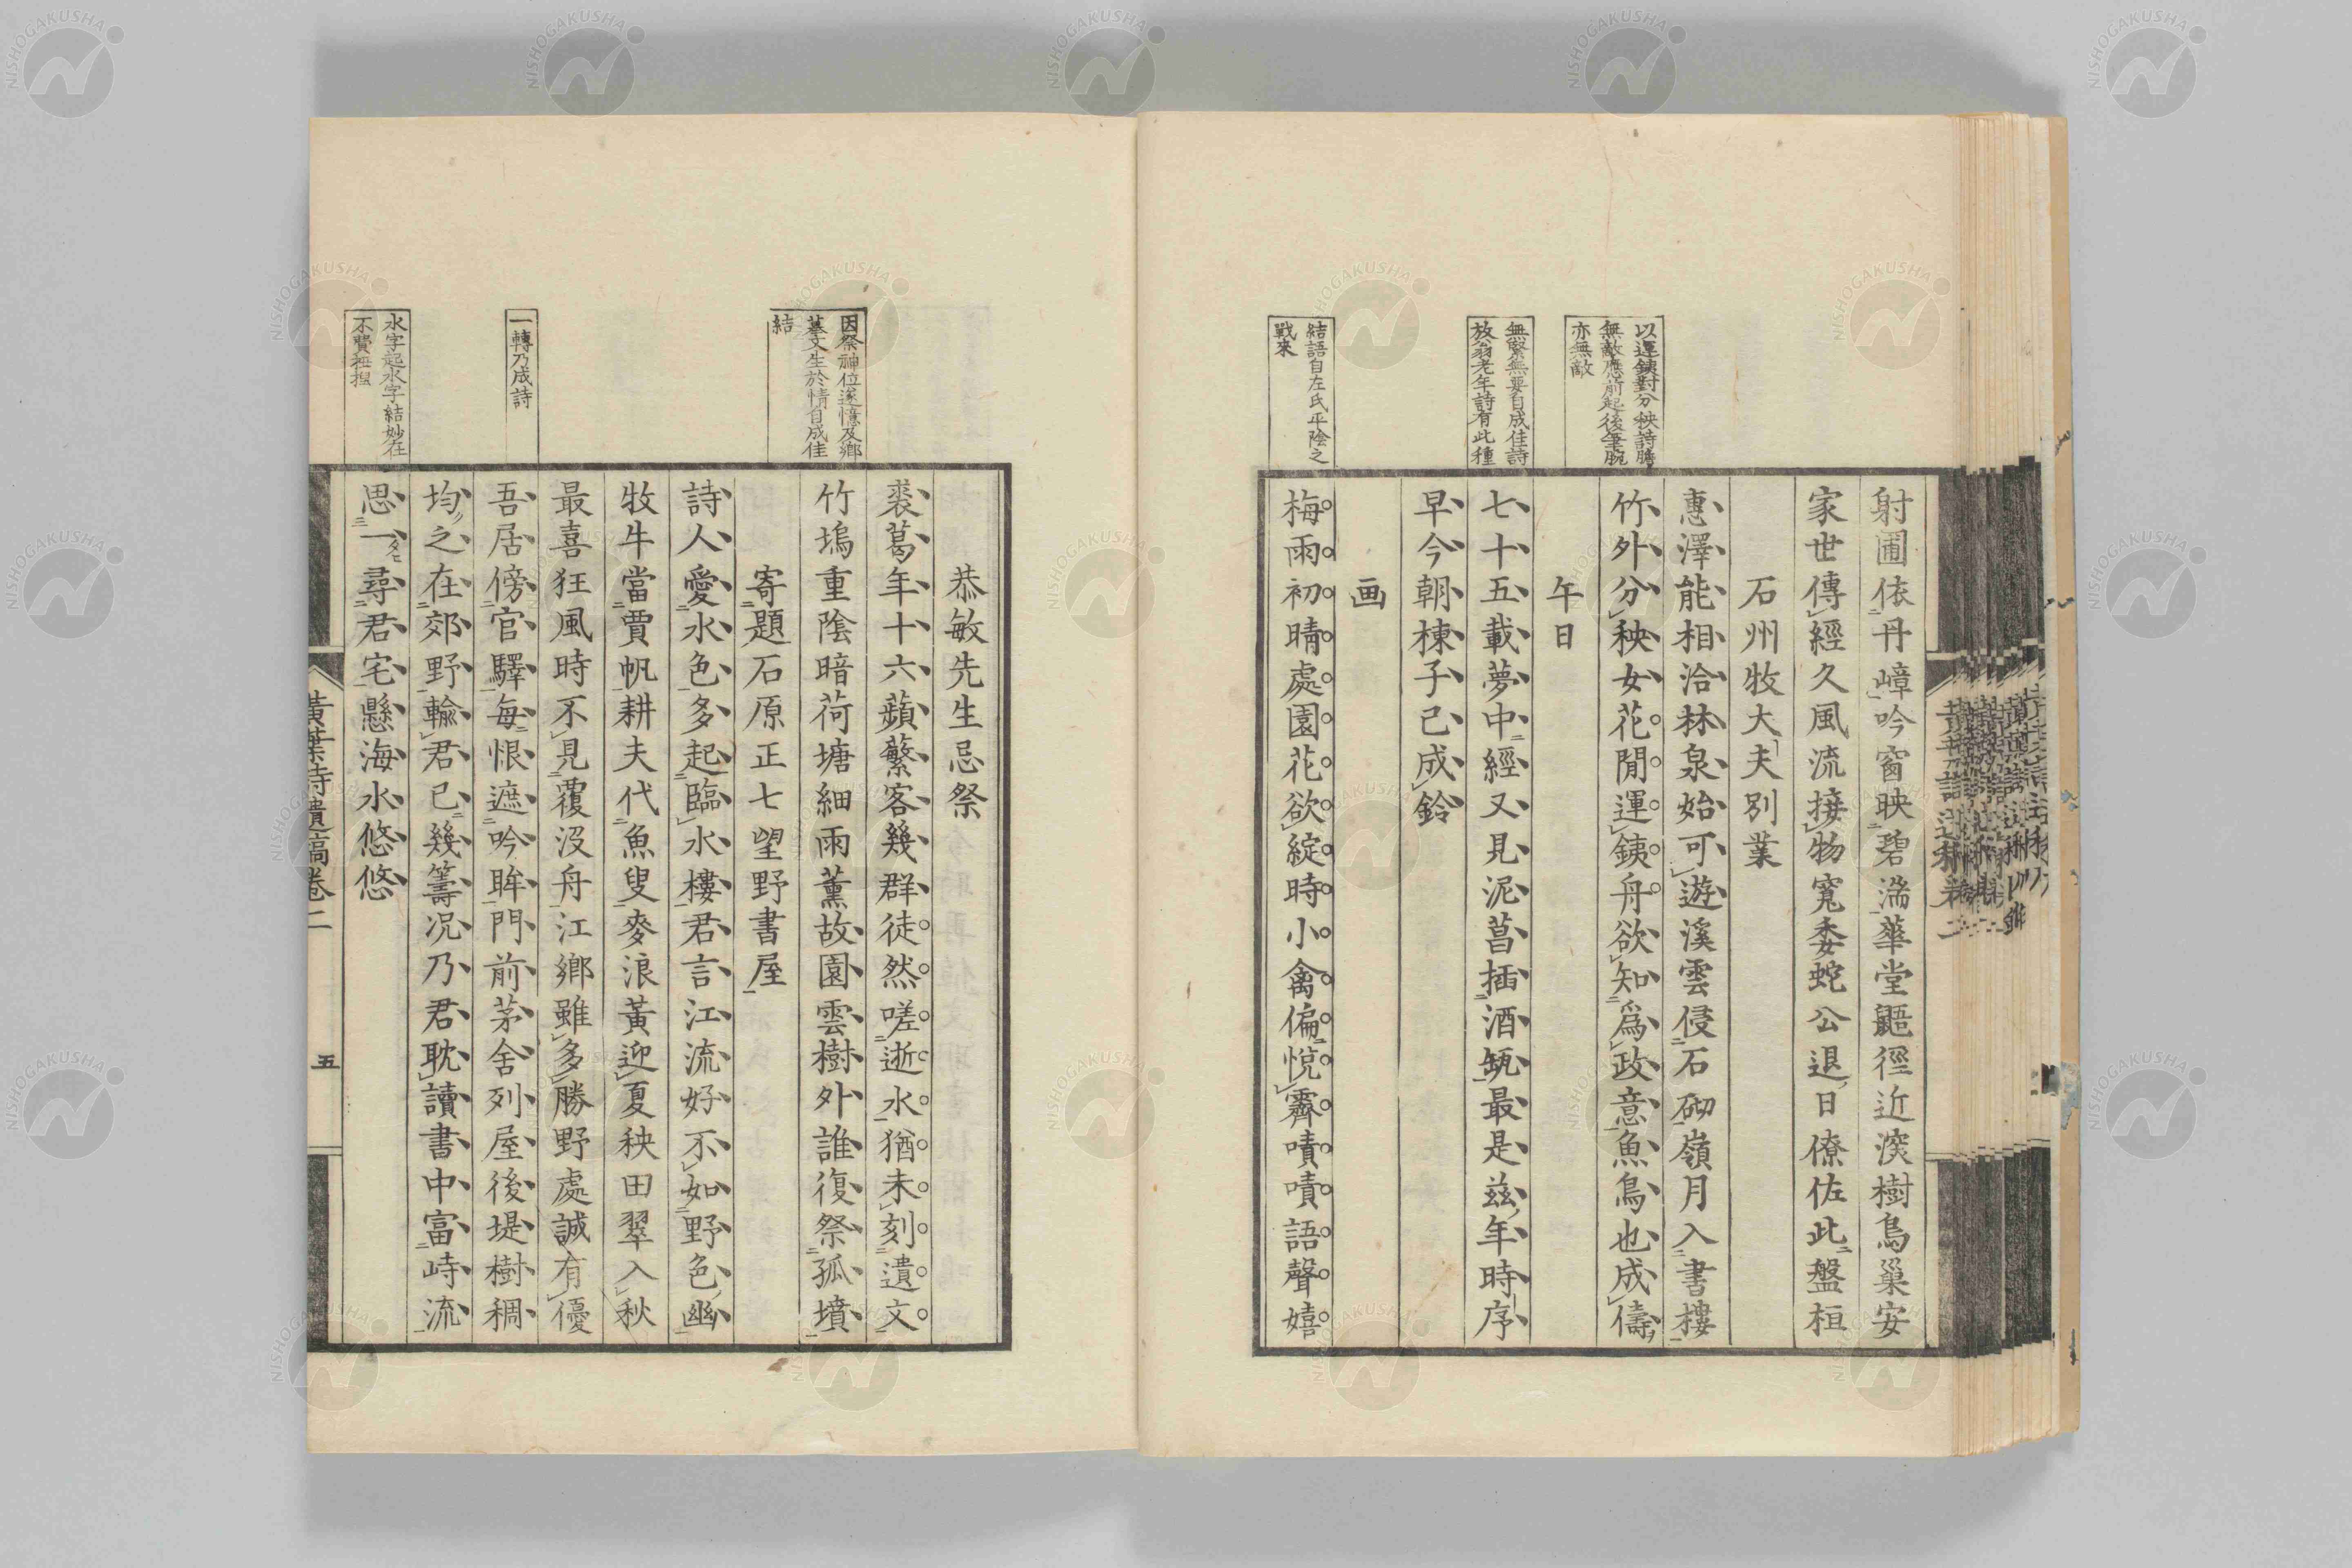 射圃依丹嶂吟窗映碧湍華堂鼯徑近深樹鳥巢安
家世傳經久風流接物寬委蛇公退日僚佐此盤桓
石州牧大夫別業
惠澤能相洽林泉始可遊溪雲侵石砌嶺月入書樓
以運銕對分秧詩膽
無敵應前起後筆腕
亦無敵
竹外分秧女花閒運銕舟欲知爲政意魚鳥也成儔
午日
無緊無要自成佳詩
放翁老年詩有此種
七十五載夢中經又見泥菖插酒瓻最是茲年時序
早今朝楝子已成鈴
画
結語自左氏平陰之
戰來
梅雨初晴處園花欲綻時小禽偏悅霽嘖嘖語聲嬉
恭敏先生忌祭
裘葛年十六蘋蘩客幾群徒然嗟逝水猶未刻遺文
因祭神位遂憶及鄉
墓文生於情自成佳
結
竹塢重陰暗荷塘細雨薰故園雲樹外誰復祭孤墳
寄題石原正七望野書屋
詩人愛水色多起臨水樓君言江流好不如野色幽
牧牛當賈帆耕夫代魚叟麥浪黃迎夏秧田翠入秋
最喜狂風時不見覆沒舟江鄉雖多勝野處誠有優
一轉乃成詩
吾居傍官驛每恨遮吟眸門前茅舍列屋後堤樹稠
均之在郊野輸君已幾籌况乃君耽讀書中富峙流
水字起水字結妙在
不費捏
思一尋君宅懸海水悠悠
黃葉詩遺稿卷二
五
NISHOGAKUSHA